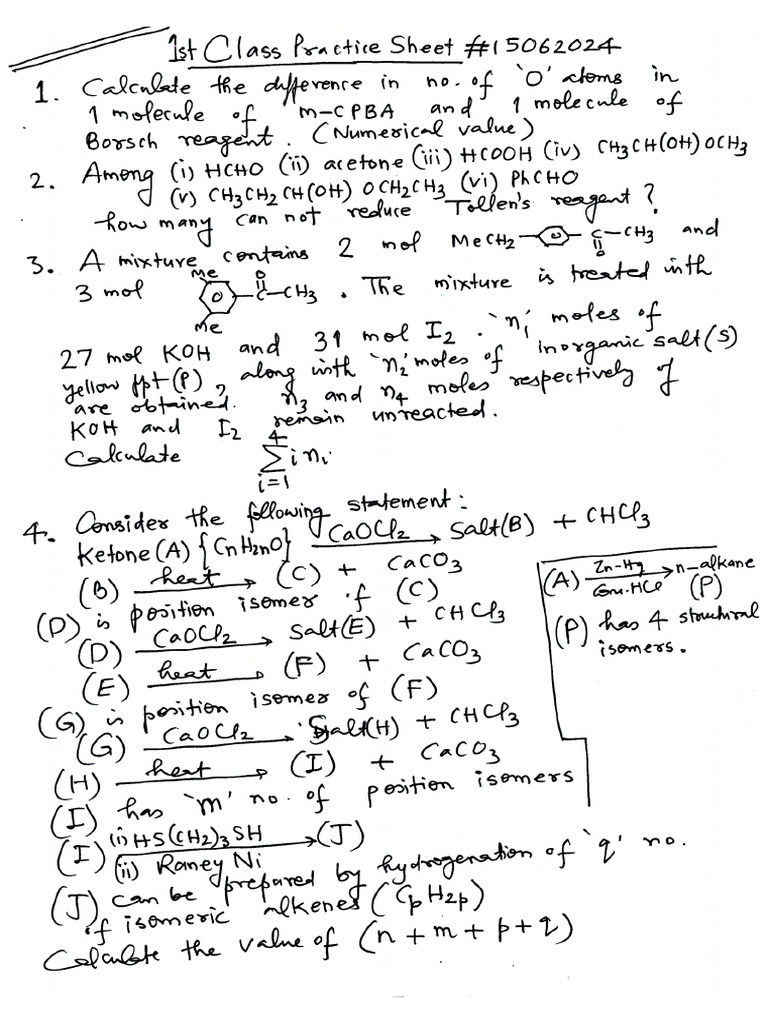 1st Class Practice Sheet #15062024
1. Calculate the difference in no. of 'O' atoms in
1 molecule of m-CPBA and 1 molecule of
Borsch reagent. (Numerical value)
2. Among (i) HCHO (ii) acetone (iii) HCOOH (iv) CH3CH(OH)OCH3
(v) CH3CH2CH(OH) OCH2CH3 (vi) PhCHO
how many can not reduce Tollen's reagent?
3. A mixture contains 2 mol MeCH2- -C-CH3 and
O
3 mol Me O -C-CH3. The mixture is treated with
Me
27 mol KOH and 31 mol I2. 'n1' moles of
yellow ppt (P), along with 'n2' moles of inorganic salt(s)
are obtained. n3 and n4 moles respectively of
KOH and I2 remain unreacted.
Calculate 4 Σ i=1 i ni.
4. Consider the following statement:
Ketone (A) {CnH2nO} CaOCl2 → Salt(B) + CHCl3
(B) heat → (C) + CaCO3
(D) is position isomer of (C)
(D) CaOCl2 → Salt(E) + CHCl3
(E) heat → (F) + CaCO3
(G) is position isomer of (F)
(G) CaOCl2 → Salt(H) + CHCl3
(H) heat → (I) + CaCO3
(I) has 'm' no. of position isomers
(I) (i) HS(CH2)3SH (ii) Raney Ni → (J)
(J) can be prepared by hydrogenation of 'q' no.
of isomeric alkenes (CpH2p)
Calculate the value of (n + m + p + q)
(A) Zn-Hg Conc. HCl → n-alkane
(P)
(P) has 4 structural
isomers.